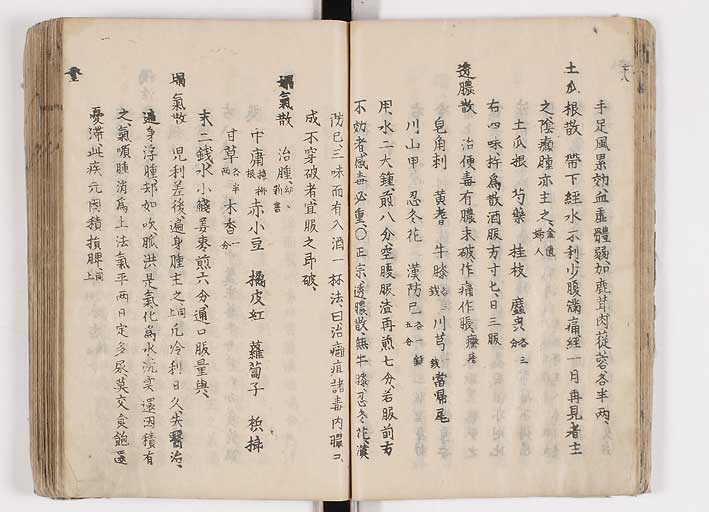 手足風累効、血虚體弱加鹿茸肉蓯蓉、各半両、
土瓜根散 帶下經水不利少腹滿痛經一月再見者主
之陰㿗腫亦主之、金匱婦人
土瓜根 芍藥 桂枝 䗪虫 各三分
右四味杵為散酒服方寸七、日三服
透膿散 治便毒有膿未破作瘡作脹、瘡瘍
皂角刺 黃耆 牛膝 各三錢 川芎 當歸尾
川山甲 忍冬花 漢防己 各一錢五分
用水二大鍾、煎八分空腹服渣再煎七分、若服前方
不効者感毒必重、○正宗透膿散無牛膝、忍冬花、漢
防己、三味而有入酒一杯法、曰治癰疽諸毒内膿口
成不穿破者宜服之即破、
塌氣散 治腫
中庸 赤小豆 橘皮紅 蘿蔔子 梹榔
甘草 各半両 木香 一分
末二錢水小盞姜棗煎六分、通口服量與、
塌氣散 児利差後、遍身腫主之、同上 凡冷利日久失醫治、
遍身浮腫却如吹、脈洪是氣化為水、沉実還因積有
之、氣順腫消為上法氣平両日定多尿莫交食飽還
憂滞此疾元因積損脾、同上